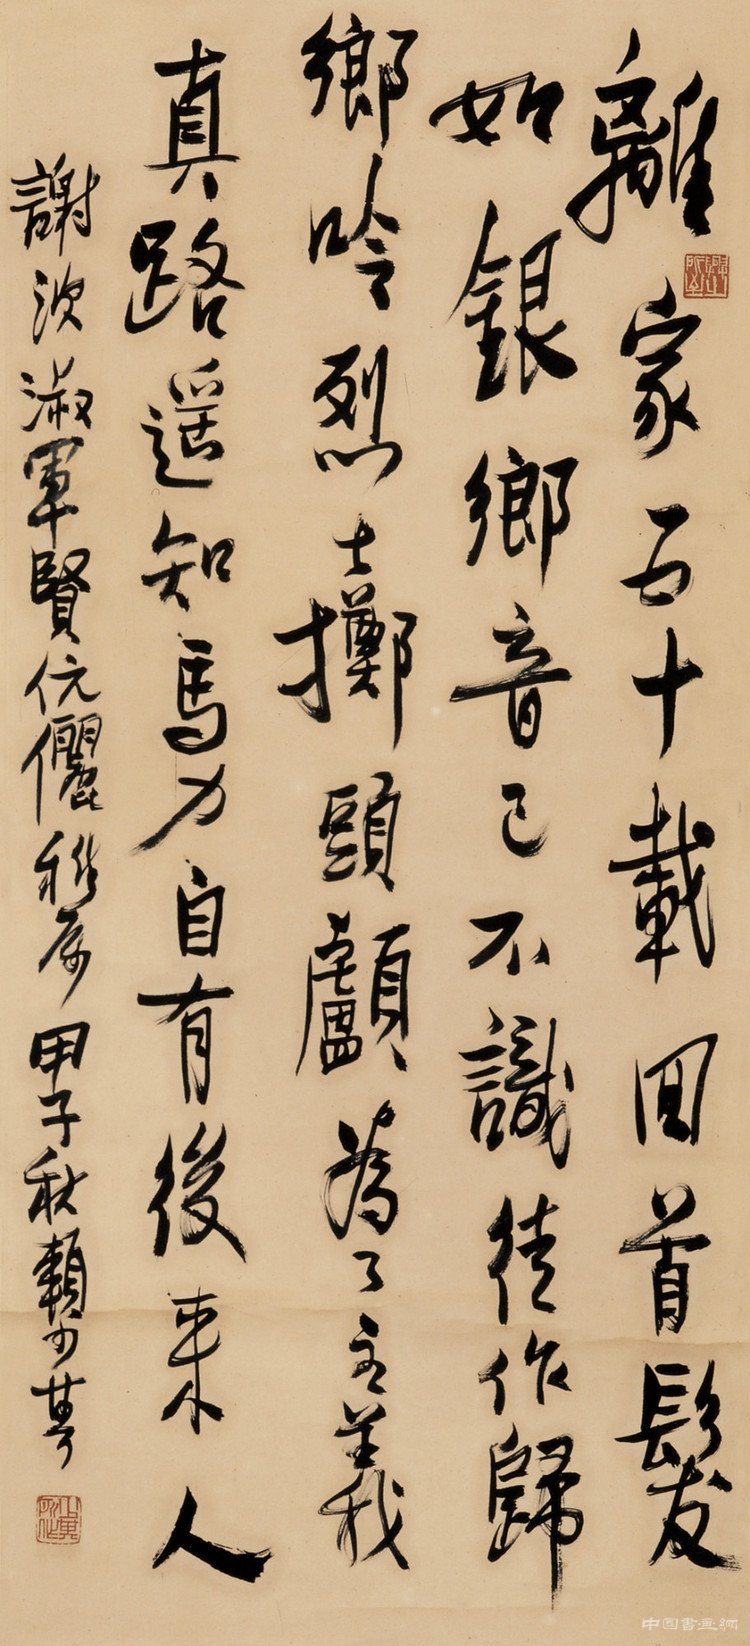 離家五十載回首髮
如銀鄉音已不識徒作歸
鄉吟烈士擲頭顱為了主義
真路遥知馬力自有後來人
謝淑軍賢伉儷雅屬甲子秋賴少其
中国書画網